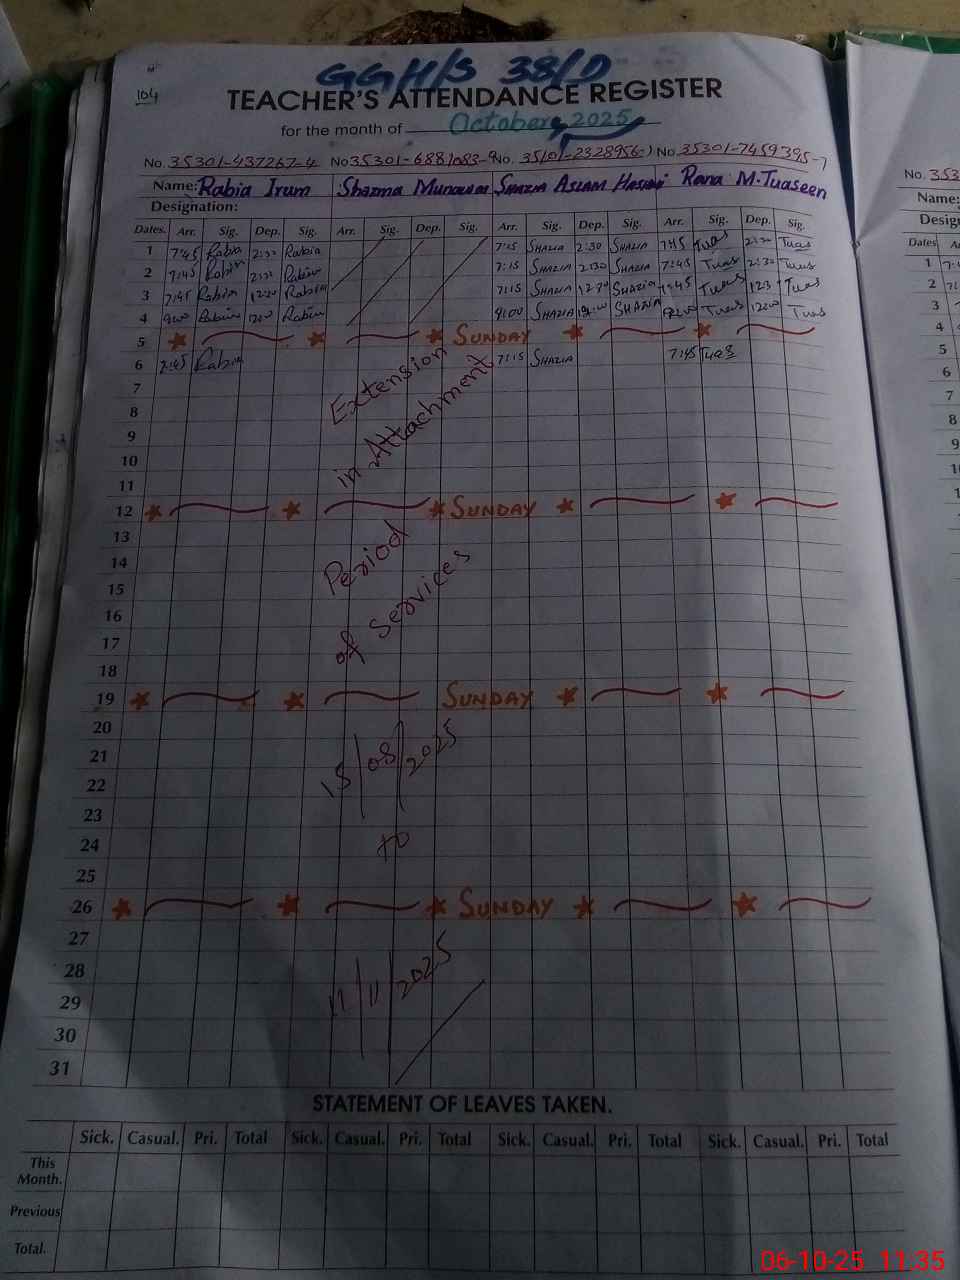 104
GGH/S 38/D
TEACHER'S ATTENDANCE REGISTER
for the month of October, 2025
No. 35301-437267-4 No 35301-6881083-9 No. 35101-2328956-) No 35301-7459395-7
Name: Rabia Irum Shazma Munawar Shazia Aslam Hashmi Rana M. Tuaseen
Designation:
Dates. Arr. Sig. Dep. Sig. Arr. Sig. Dep. Sig. Arr. Sig. Dep. Sig. Arr. Sig. Dep. Sig.
1 7:45 Rabia 2:30 Rabia 7:15 SHAZIA 2:30 SHAZIA 7:45 Tuas 2:30 Tuas
2 7:45 Rabia 2:30 Rabia 7:15 SHAZIA 2:30 SHAZIA 7:45 Tuas 2:30 Tuas
3 7:45 Rabia 12:30 Rabia 7:15 SHAZIA 12:30 SHAZIA 7:45 Tuas 123 Tuas
4 9:00 Rabia 12:00 Rabia 9:00 SHAZIA 12:00 SHAZIA 9:00 Tuas 12:00 Tuas
5 SUNDAY
6 7:45 Rabia 7:15 SHAZIA 7:45 Tuas
Extension
in Attachment
7
8
9
10
11
12 SUNDAY
Period
of Services
13
14
15
16
17
18
19 SUNDAY
15/08/2025
to
20
21
22
23
24
25
26 SUNDAY
11/11/2025
27
28
29
30
31
STATEMENT OF LEAVES TAKEN.
Sick. Casual. Pri. Total Sick. Casual. Pri. Total Sick. Casual. Pri. Total Sick. Casual. Pri. Total
This
Month.
Previous
Total.
No. 353
Name:
Desig
Dates
1
2
3
4
5
6
7
8
9
10
06-10-25 11:35